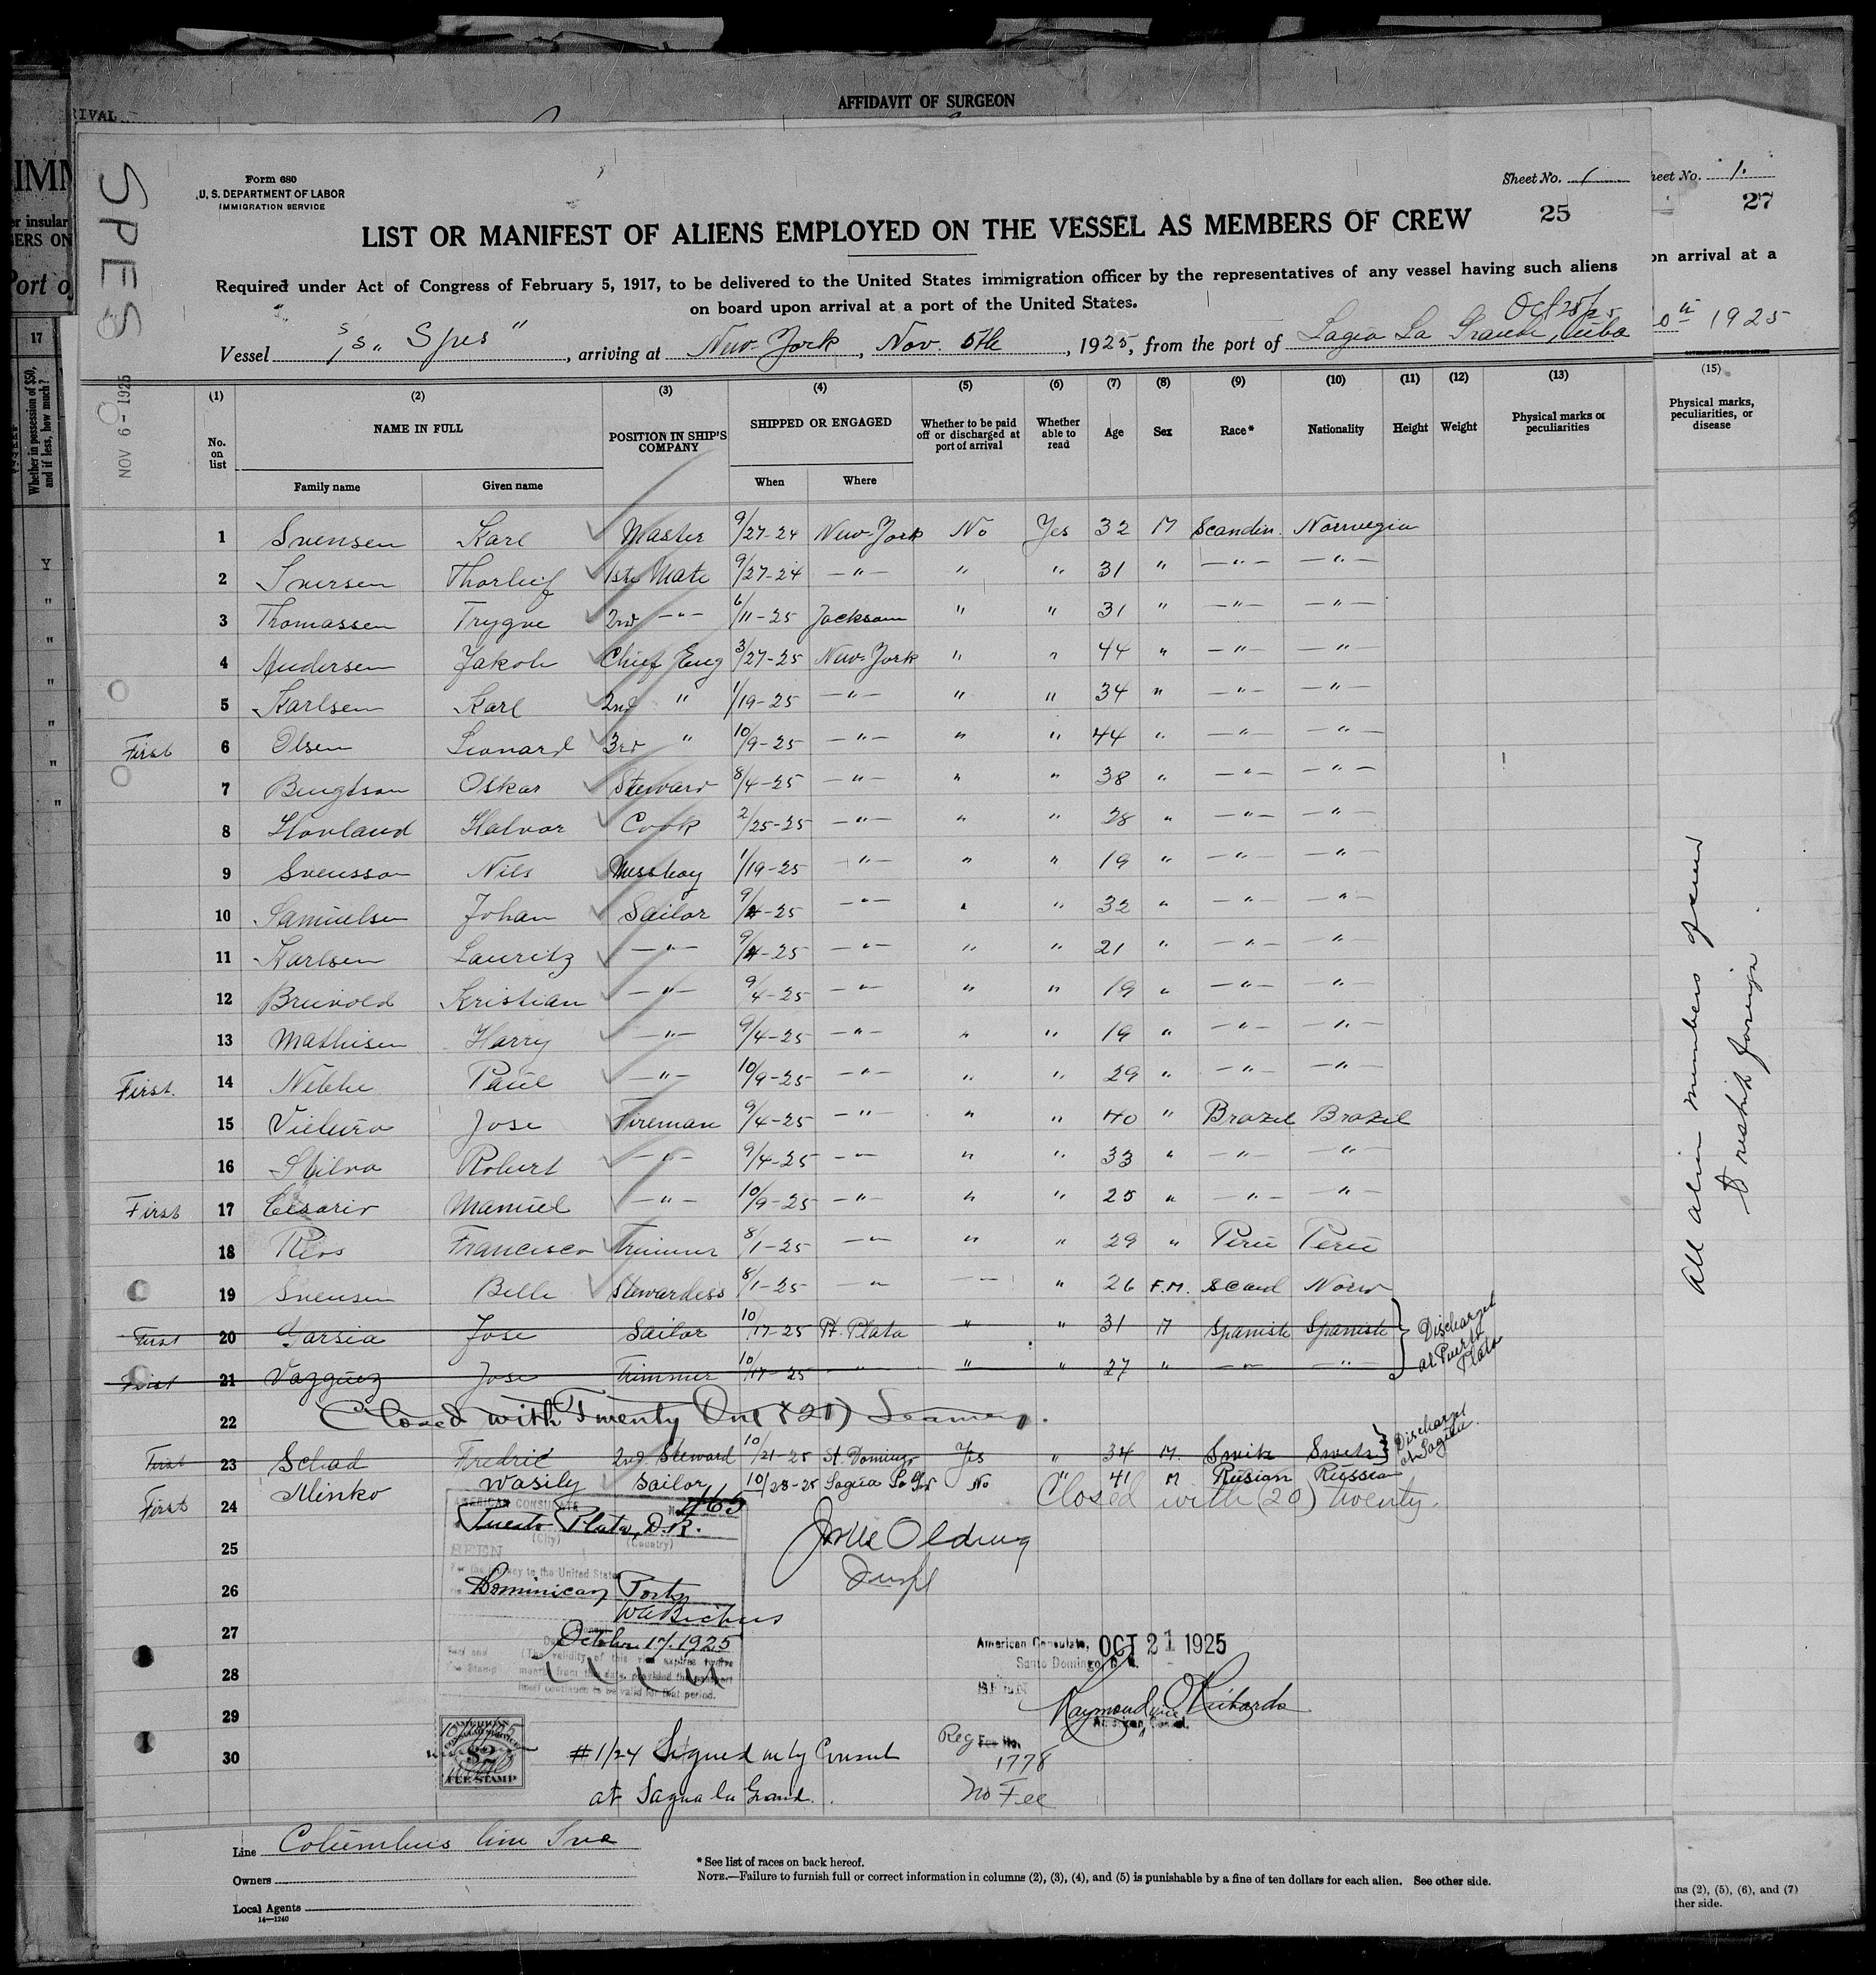 AFFIDAVIT OF SURGEON
RIVAL
Form 680
U. S. DEPARTMENT OF LABOR
IMMIGRATION SERVICE
Sheet No. 1
25
SPES
NOV 6 - 1925
LIST OR MANIFEST OF ALIENS EMPLOYED ON THE VESSEL AS MEMBERS OF CREW
Required under Act of Congress of February 5, 1917, to be delivered to the United States immigration officer by the representatives of any vessel having such aliens
on board upon arrival at a port of the United States.
Oct 28/25
Vessel S/S "Spes", arriving at New-York, Nov. 5th, 1925, from the port of Sagua La Grande, Cuba
(1) (2) (3) (4) (5) (6) (7) (8) (9) (10) (11) (12) (13)
No. on list NAME IN FULL POSITION IN SHIP'S COMPANY SHIPPED OR ENGAGED Whether to be paid off or discharged at port of arrival Whether able to read Age Sex Race* Nationality Height Weight Physical marks or peculiarities
Family name Given name When Where
1 Svensen Karl Master 9/27-24 New-York No Yes 32 M Scandin. Norwegia
2 Iversen Thorleif 1st Mate 9/27-24 — " — " " 31 " — " — — " —
3 Thomassen Trygve 2nd — " — 6/11-25 Jackson " " 31 " — " — — " —
4 Andersen Jakob Chief Eng 3/27-25 New-York " " 44 " — " — — " —
5 Karlsen Karl 2nd " 1/19-25 — " — " " 34 " — " — — " —
First 6 Olsen Leonard 3rd " 10/9-25 — " — " " 44 " — " — — " —
7 Bengtson Oskar Steward 8/4-25 — " — " " 38 " — " — — " —
8 Hovland Halvor Cook 2/25-25 — " — " " 28 " — " — — " —
9 Svensson Nils Messboy 1/19-25 — " — " " 19 " — " — — " —
10 Samuelsen Johan Sailor 9/4-25 — " — " " 32 " — " — — " —
11 Karlsen Lauritz — " — 9/4-25 — " — " " 21 " — " — — " —
12 Breivold Kristian — " — 9/4-25 — " — " " 19 " — " — — " —
13 Mathisen Harry — " — 9/4-25 — " — " " 19 " — " — — " —
First. 14 Nibbe Paul — " — 10/9-25 — " — " " 29 " — " — — " —
15 Vieira Jose Fireman 9/4-25 — " — " " 40 " Brazil Brazil
16 Silva Robert — " — 9/4-25 — " — " " 33 " — " — — " —
First 17 Cesario Manuel — " — 10/9-25 — " — " " 25 " — " — — " —
18 Rios Francisco Trimmer 8/1-25 — " — " " 29 " Peru Peru
19 Svensen Belle Stewardess 8/1-25 — " — — " 26 F.M. Scand Norw
First 20 Garsia Jose Sailor 10/17-25 Pt. Plata " " 31 M Spanish Spanish } Discharged at Puerto Plata
First 21 Vazquez Jose Trimmer 10/17-25 — " — " " 27 " — " — — " —
22 Closed with Twenty One (21) Seamen.
First 23 Schad Fredric 2nd Steward 10/21-25 St. Domingo Yes " 34 M. Swith Swith } Discharged at Sagua.
First 24 Minko Wasily Sailor 10/28-25 Sagua La Gr No " 41 M Rusian Russia
Closed with (20) twenty.
25
26
27
28
29
30
AMERICAN CONSULATE
No. 465
Puerto Plata, D.R.
(City) (Country)
SEEN
For the journey to the United States
Dominican Ports
October 17, 1925
(The validity of this visa expires twelve months from this date, provided the passport itself continues to be valid for that period.
Fee Stamp
$2
FEE STAMP
American Consulate, OCT 21 1925
Santo Domingo, D. R.
SEEN
Raymond Richards
Vice
American Consul.
Reg Fee No.
1778
No Fee
#1/24 Signed by Consul
at Sagua la Grand.
Line Columbus line Inc
Owners
Local Agents
14—1240
* See list of races on back hereof.
NOTE.—Failure to furnish full or correct information in columns (2), (3), (4), and (5) is punishable by a fine of ten dollars for each alien. See other side.
heet No. 1.
27
on arrival at a
1925
(15)
Physical marks, peculiarities, or disease
All alien members of crew
to reship foreign
ns (2), (5), (6), and (7)
ther side.
IMM
er insular
ERS ON
Port of
17
Whether in possession of $50, and if less, how much?